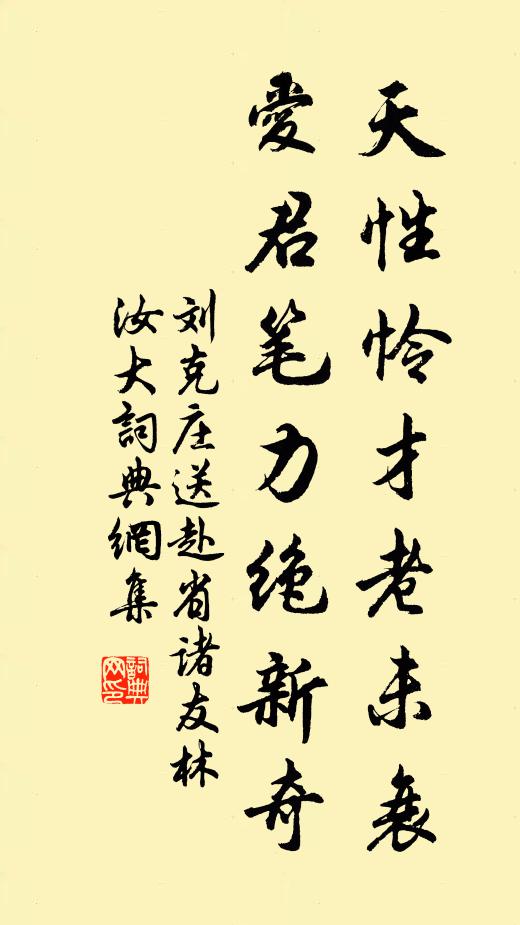 天性怜才老未衰
愛君笔力绝新奇
刘克庄送赴省诸友林
汝大詞典網集
詞典网印